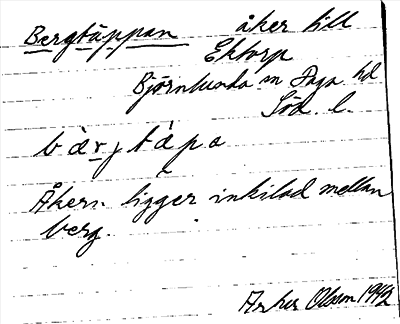 Bergtäppan åker till
Ektorp
Björnlunda sn Daga hd
Söd. l.
bæ̀rjtàpa
Åkern ligger inkilad mellan
berg.
Olsson 1942